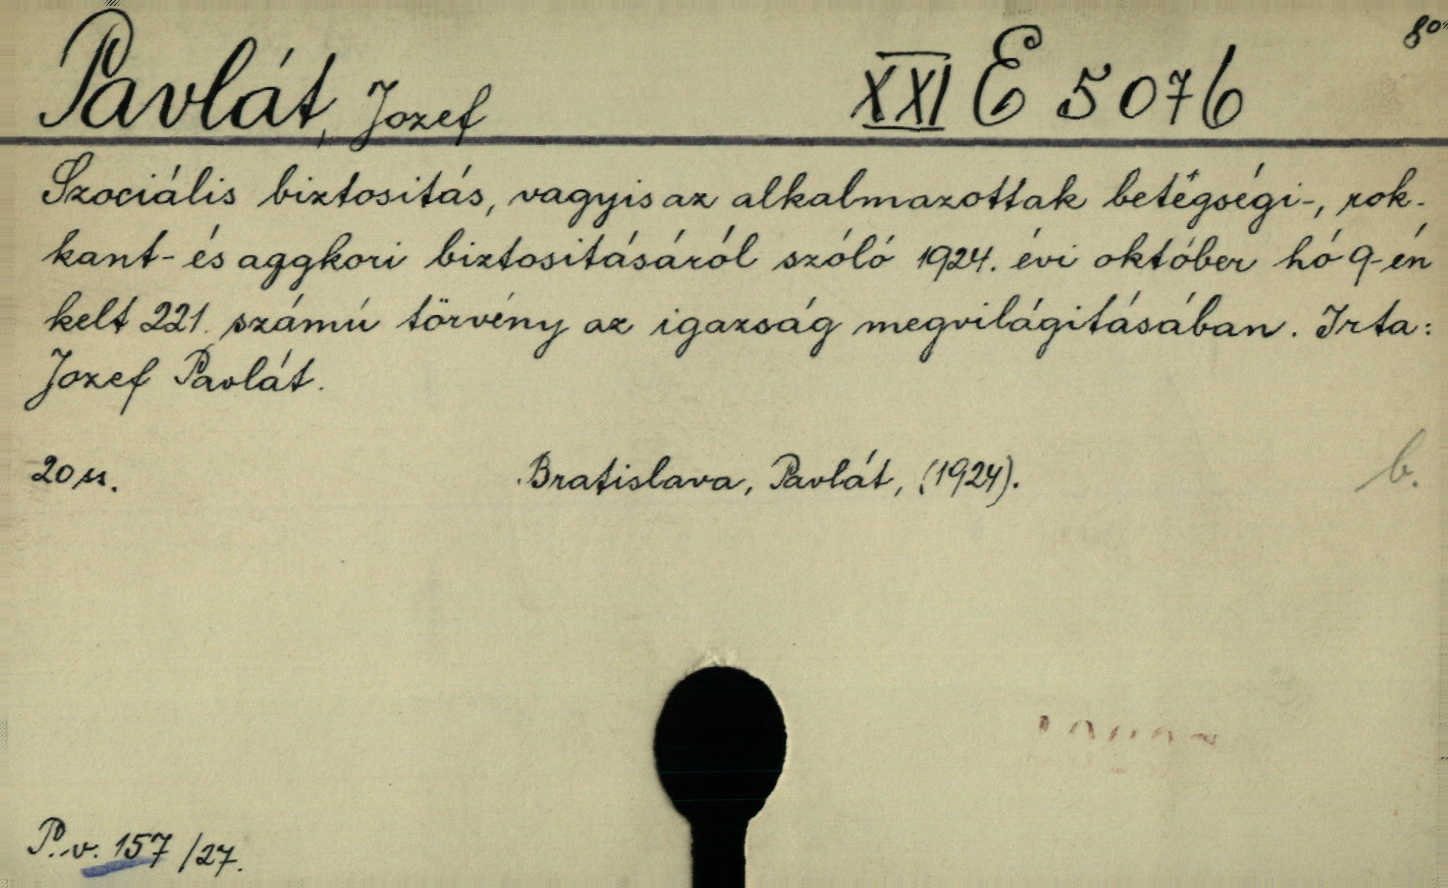 8°
Pavlát, Jozef XXI E 5076
Szociális biztositás, vagyis az alkalmazottak betegségi-, rok-
kant- és aggkori biztositásáról szóló 1924. évi október hó 9-én
kelt 221. számú törvény az igazság megvilágitásában. Irta:
Jozef Pavlát.
20 Bratislava, Pavlát, (1924). b.
P. v. 157/27.